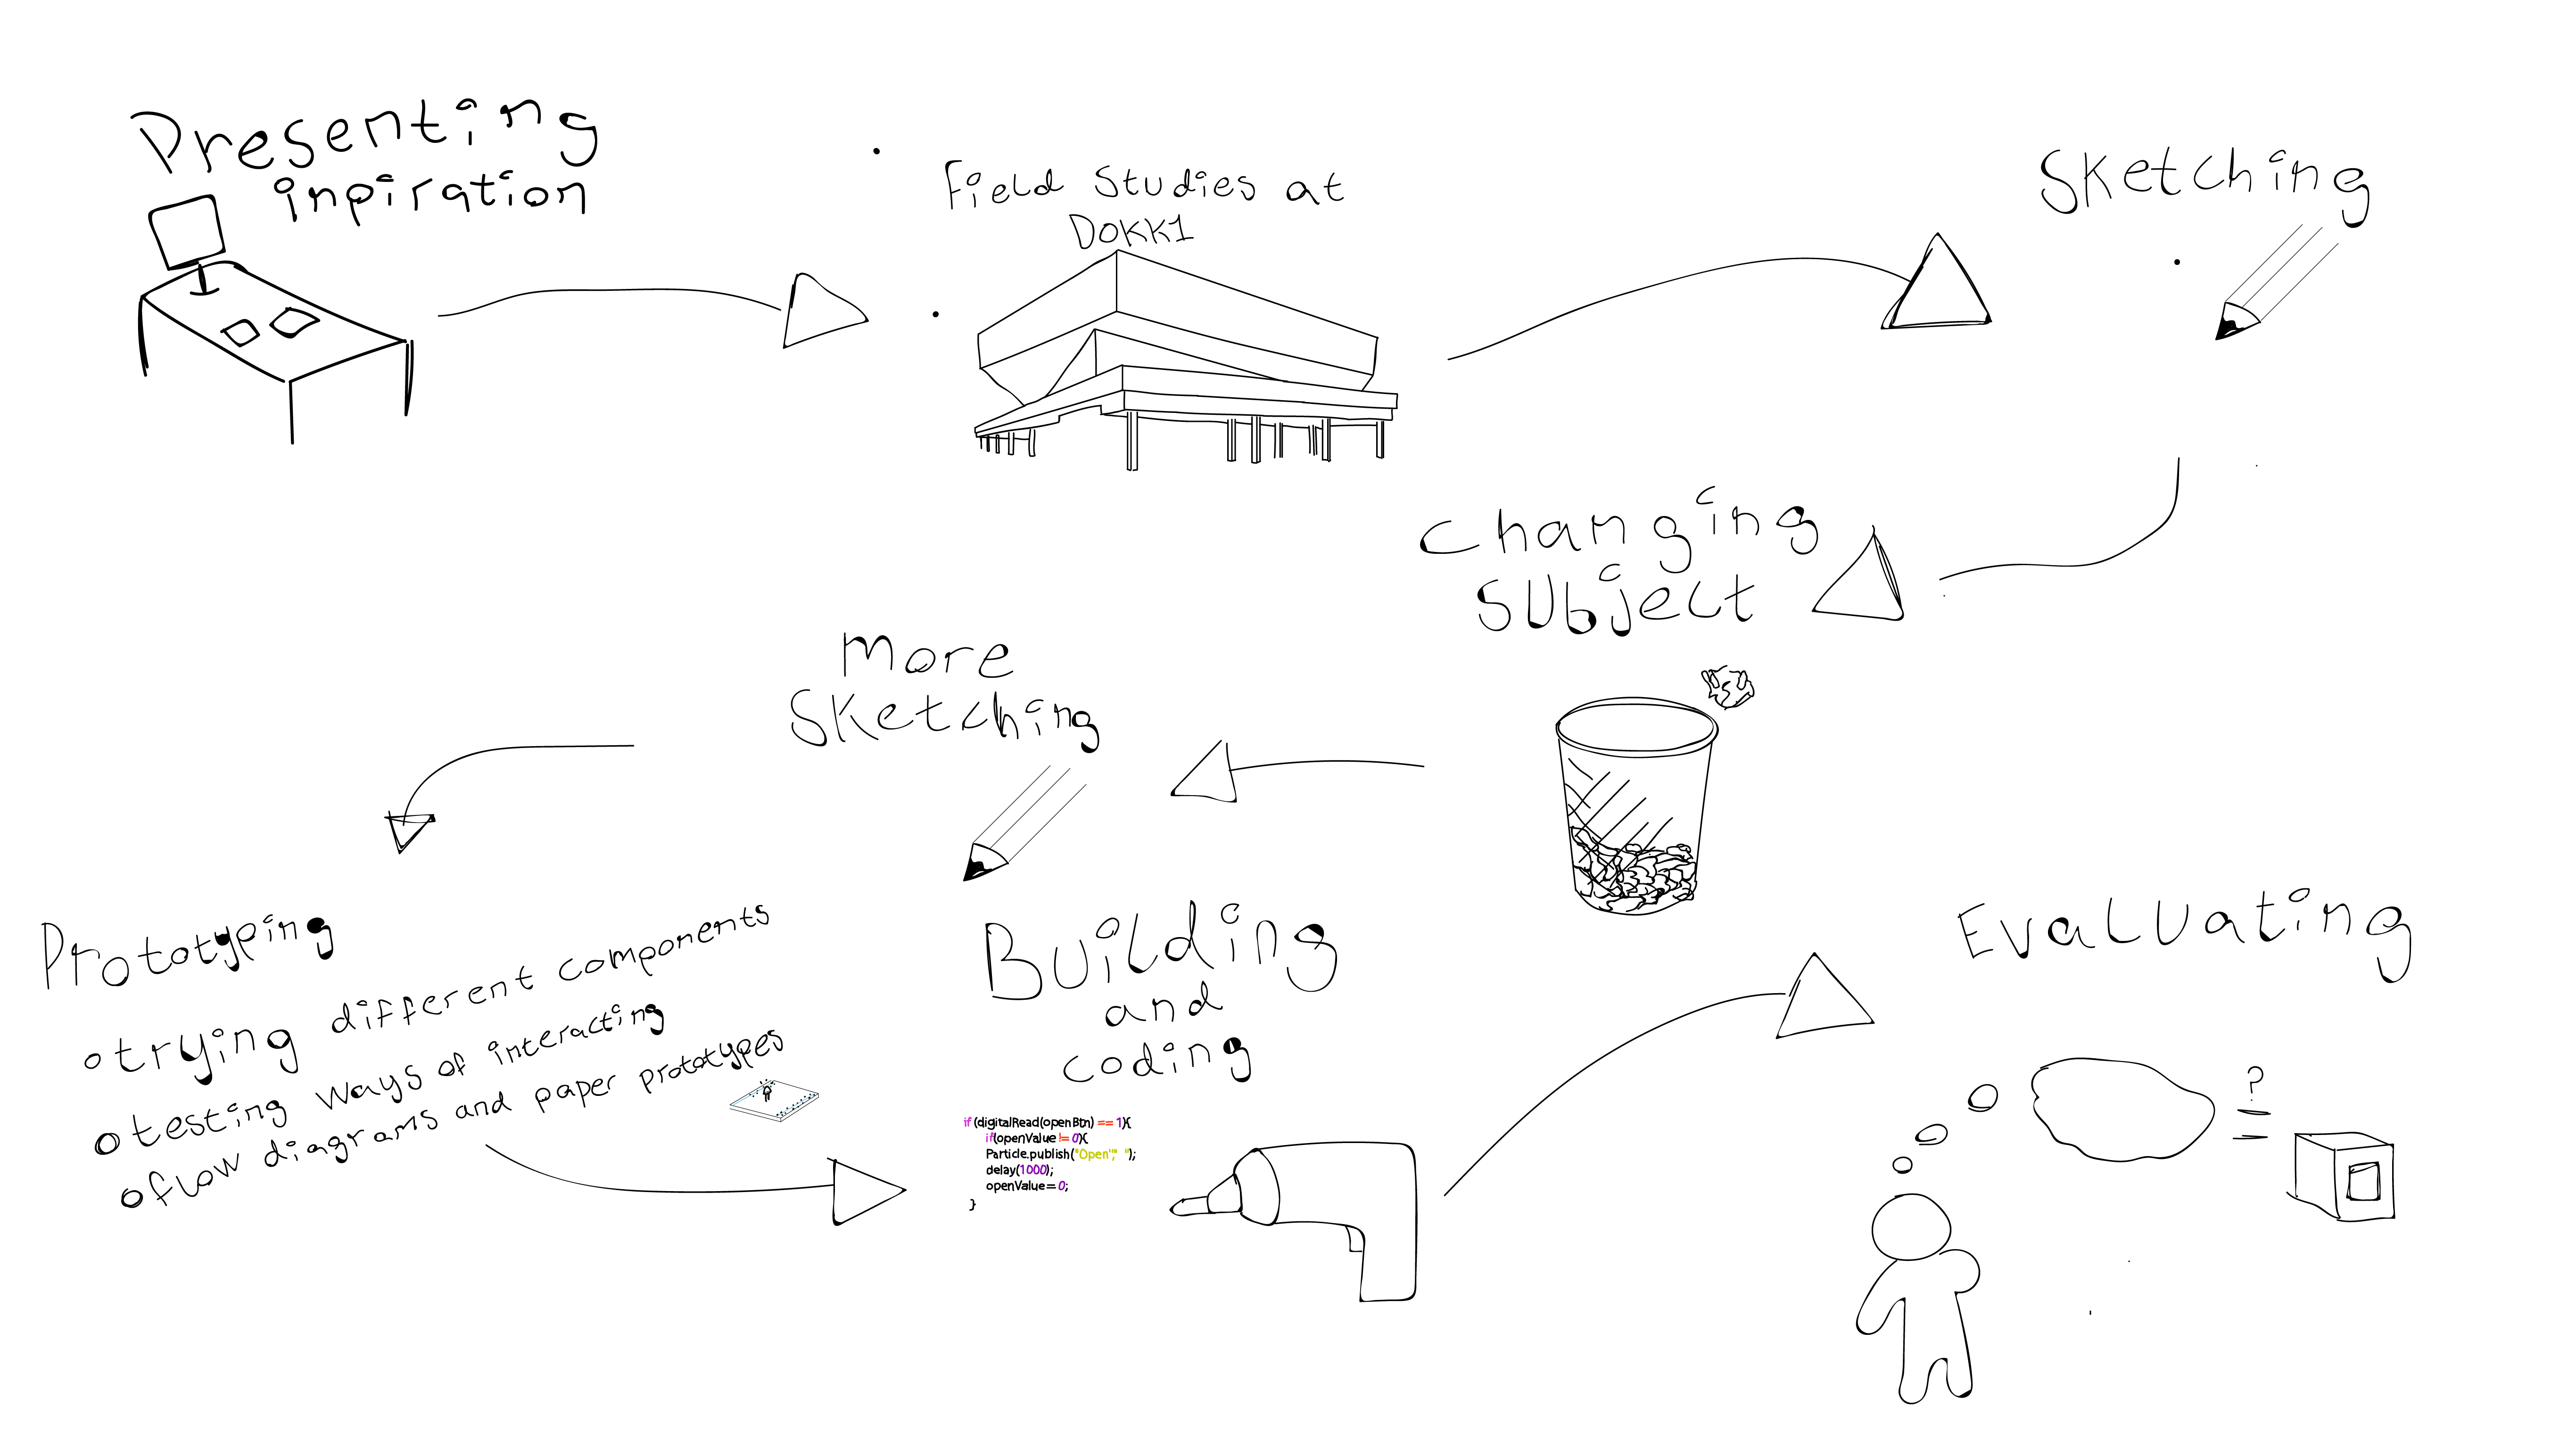 Presenting
inpiration
Field Studies at
DOKK1
Sketching
Changing
Subject
More
Sketching
Prototyping
trying different components
testing ways of interacting
flow diagrams and paper prototypes
Building
and
coding
if (digitalRead(openBtn) == 1){
if(openValue != 0){
Particle.publish("Open"," ");
delay(1000);
openValue = 0;
}
Evaluating
?
=